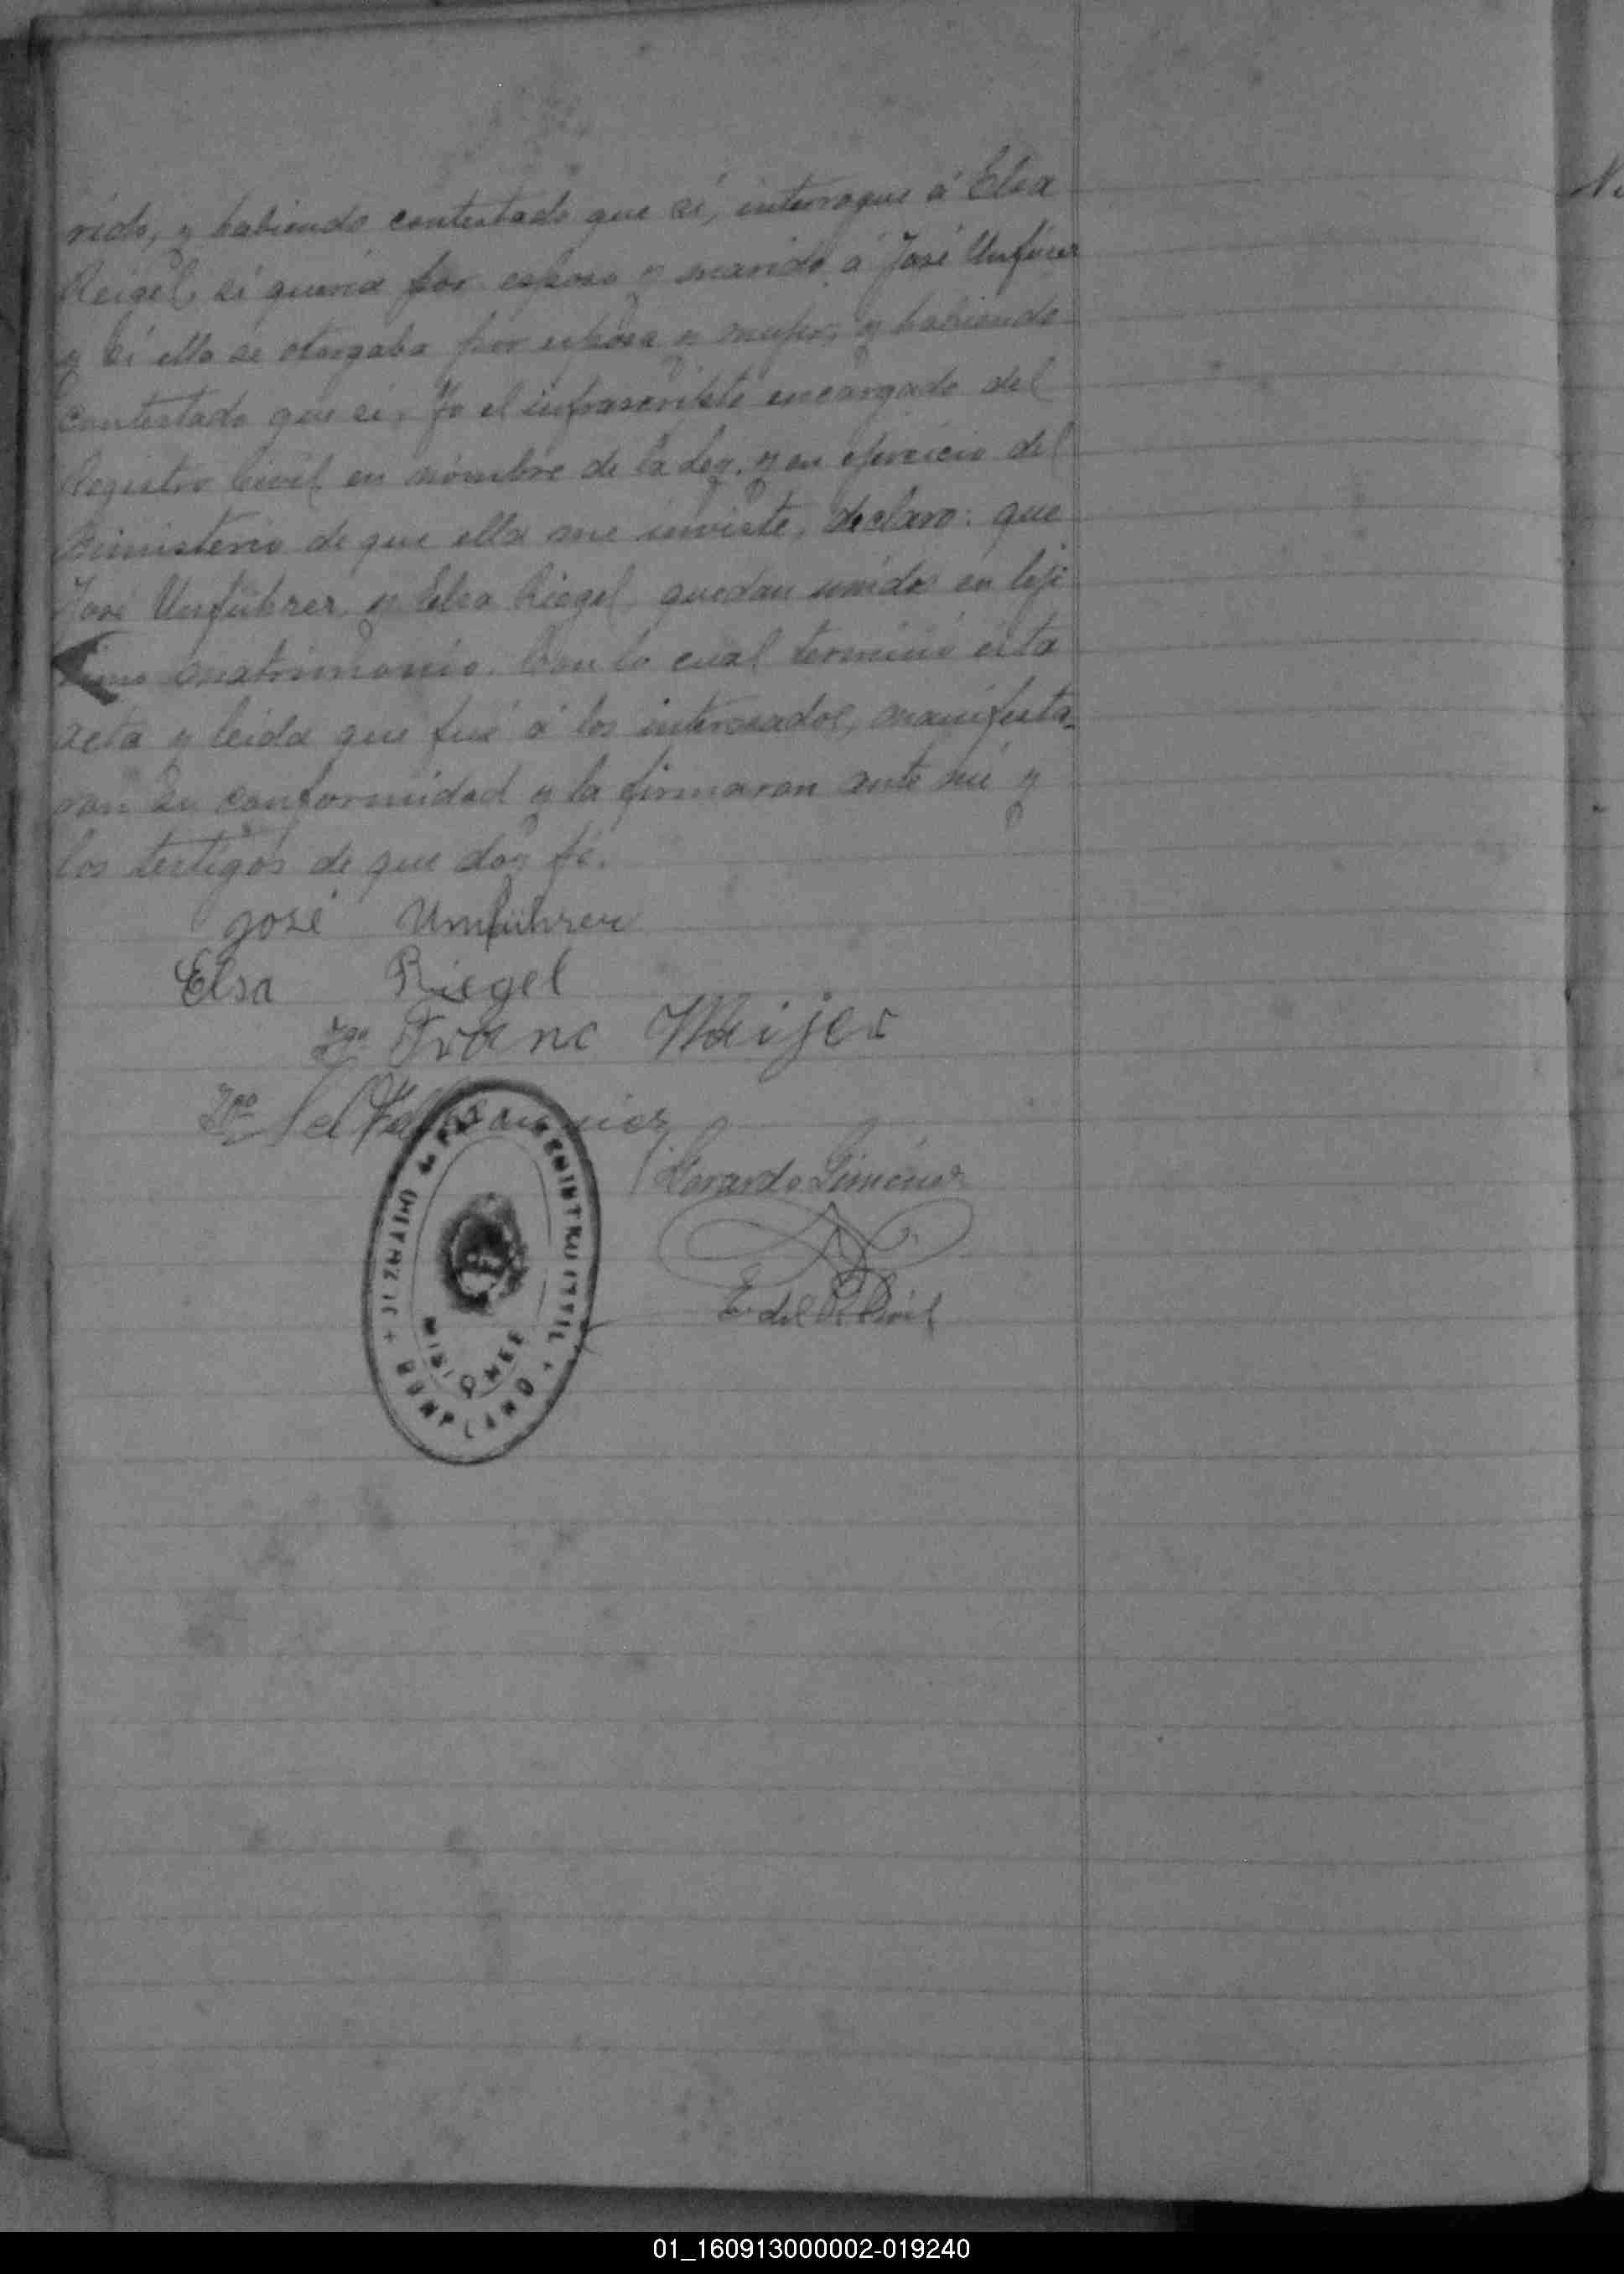 rido, y habiendo contestado que sí, interrogue á Elsa
Reigel, si queria por esposo y marido á José Unfürer
y si ella se otorgaba por esposa y mujer, y habiendo
contestado que si, Yo el infrascripto encargado del
Registro Civil en nombre de la Ley, y en ejercicio del
ministerio de que ella me inviste, declaro: que
José Unführer y Elsa Riegel quedan unidos en leji
timo matrimonio. Con lo cual terminó esta
acta y leida que fué á los interesados, manifesta-
ron su conformidad y la firmaron ante mi y
los testigos de que doy fé.
José Umführer
Elsa Riegel
Tgo Franc Meijer
Tgo
Gerardo Gimenez
E. del R. Civil
JUZGADO DE PAZ REGISTRO CIVIL
MISIONES
BONPLAND
01_160913000002-019240